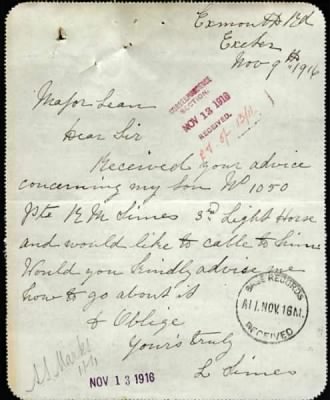 Exmouth Rd
Exeter
Nov 9th 1916
Major Lean
Dear Sir
CORRESPONDENCE
SECTION.
NOV 13 1916
RECEIVED.
Received your advice
concerning my son No 1050
Pte R M Simes 3rd Light Horse
and would like to cable to him
Would you kindly advise me
how to go about it
& Oblige
Yours truly
L Simes
BASE RECORDS
A11.NOV.16M.
RECEIVED
NOV 13 1916